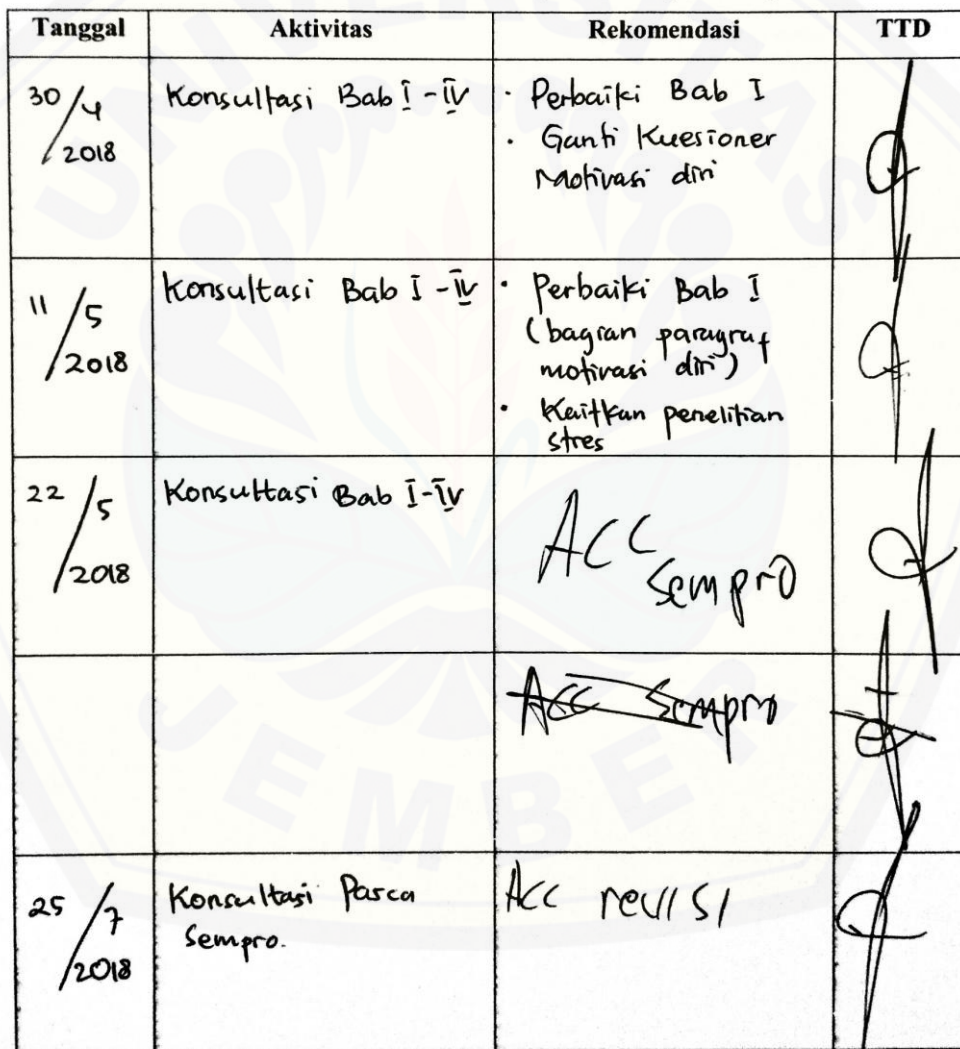 Tanggal Aktivitas Rekomendasi TTD
30/4 2018 Konsultasi Bab I - IV · Perbaiki Bab I
· Ganti Kuesioner
Motivasi diri
11/5 2018 Konsultasi Bab I - IV · Perbaiki Bab I
(bagian paragraf
motivasi diri)
· Kaitkan penelitian
stres
22/5 2018 Konsultasi Bab I-IV ACC
Sempro
ACC Sempro
25/7 2018 Konsultasi Pasca ACC revisi
Sempro.
UNIVERSITAS
JEMBER